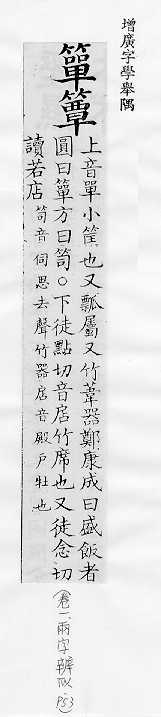 增廣字學舉隅
簞簟
上音單小筐也又瓢屬又竹葦器鄭康成曰盛飯者
圓曰簞方曰笥○下徒點切音扂竹席也又徒念切
讀若店 笥音伺思去聲竹器扂音殿戶牡也
(卷一 兩字辨似 P53)